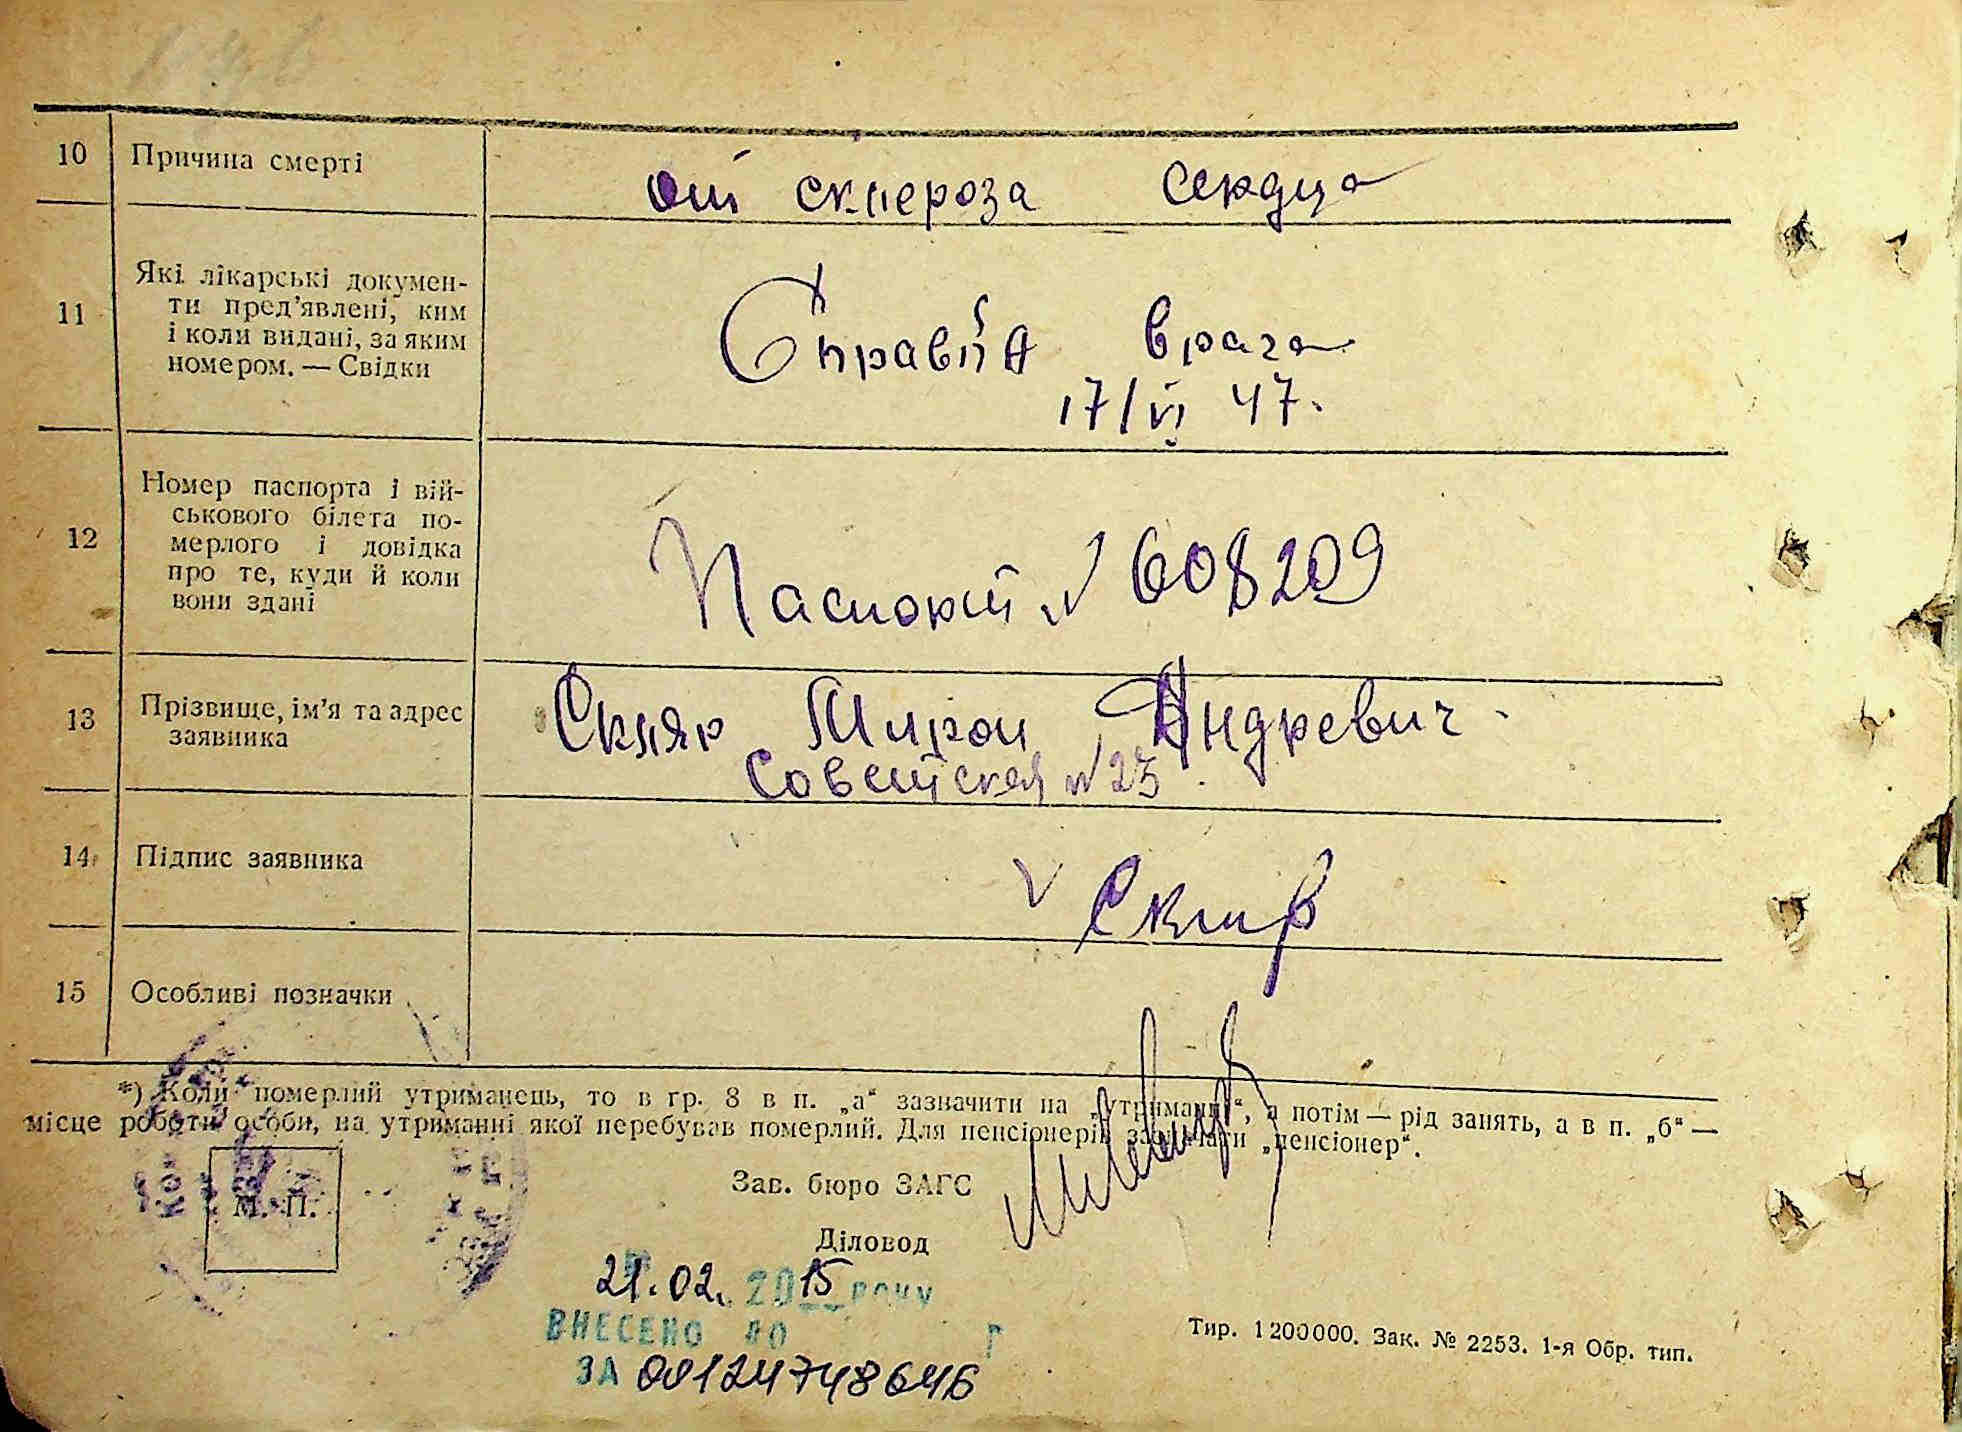 10 Причина смерті от склероза сердца
11 Які лікарські докумен-
ти пред’явлені, ким
і коли видані, за яким
номером. — Свідки
Справка врача
17/VI 47.
12 Номер паспорта і вій-
ськового білета по-
мерлого і довідка
про те, куди й коли
вони здані
Паспорт N 608209
13 Прізвище, ім’я та адрес
заявника
Скляр Мирон Андревич
Советская N 23
14 Підпис заявника V Скляр
15 Особливі позначки
*) Коли померлий утриманець, то в гр. 8 в п. „а“ зазначити на „утриманні“, а потім — рід занять, а в п. „б“ —
місце роботи особи, на утриманні якої перебував померлий. Для пенсіонерів зазначати „пенсіонер“.
М. П.
Зав. бюро ЗАГС
Діловод
21.02. 2015 року
ВНЕСЕНО ДО Г
ЗА 00124748646
Тир. 1200000. Зак. № 2253. 1-я Обр. тип.